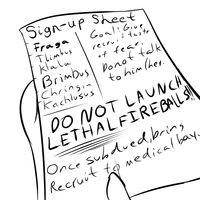 Sign-up Sheet
Fraga
Thimbus
Klala
Brimbus
Chringin
Kachlusus
Goal: Give
recruit taste
of fear.
Do not talk
to him/her.
DO NOT LAUNCH
LETHAL FIREBALLS!!
Once subdued, bring
Recruit to medical bay.